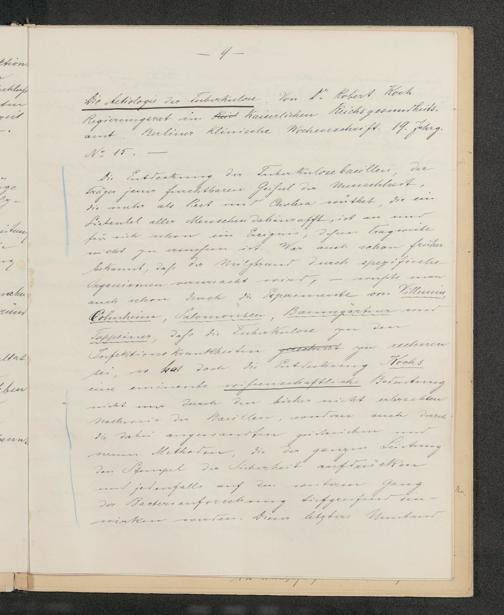 — 4 —
Die Aetiologie der Tuberkulose. Von Dr. Robert Koch
Regierungsrat im Kaiserlichen Reichsgesundheits-
amt Berliner klinische Wochenschrift. 19. Jahrg.
No 15. —
Die Entdeckung der Tuberkulosebacillen, der
Träger jener furchtbaren Geißel der Menschheit,
die mehr als Pest und Cholera wüthet, die ein
Siebentel aller Menschen dahinrafft, ist an und
für sich schon ein Ereignis, dessen Tragweite
nicht zu ermessen ist. War auch schon früher
bekannt, daß der Milzbrand durch spezifische
Organismen verursacht wird, — wußte man
auch schon durch die Experimente von Villemin,
Cohnheim, Salomonsen, Baumgarten und
Tappeiner, daß die Tuberkulose zu den
Infektionskrankheiten zu rechnen
sei, so hat doch die Entdeckung Kochs
eine eminente wissenschaftliche Bedeutung
nicht nur durch den bisher nicht erbrachten
Nachweis der Bacillen, sondern auch durch
die dabei angewandten und
neuen Methoden, die der ganzen Leistung
den Stempel der Sicherheit aufdrücken
und jedenfalls auf den weiteren Gang
der Bacterienforschung tiefgreifend ein-
wirken werden. Dieser letztere Umstand